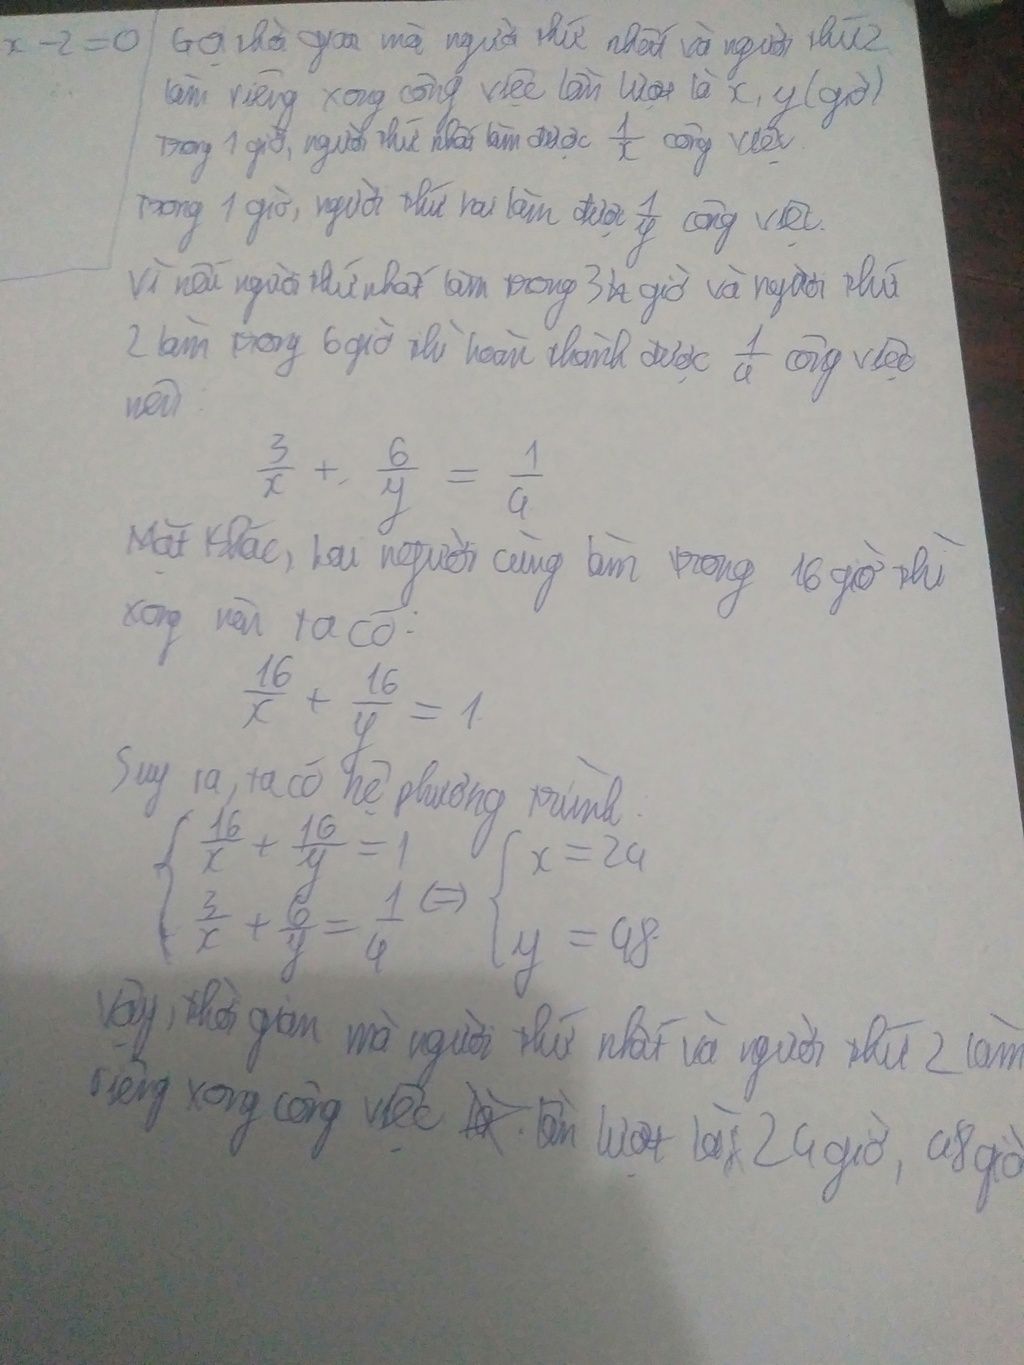 x - 2 = 0
Gọi thời gian mà người thứ nhất và người thứ 2
làm riêng xong công việc lần lượt là x, y (giờ)
Trong 1 giờ, người thứ nhất làm được 1/x công việc.
Trong 1 giờ, người thứ hai làm được 1/y công việc.
Vì nếu người thứ nhất làm trong 3 giờ và người thứ
2 làm trong 6 giờ thì hoàn thành được 1/4 công việc
nên:
3/x + 6/y = 1/4
Mặt khác, hai người cùng làm trong 16 giờ thì
xong nên ta có:
16/x + 16/y = 1
Suy ra, ta có hệ phương trình:
{ 16/x + 16/y = 1
3/x + 6/y = 1/4 <=> { x = 24
y = 48
Vậy, thời gian mà người thứ nhất và người thứ 2 làm
riêng xong công việc lần lượt là 24 giờ, 48 giờ